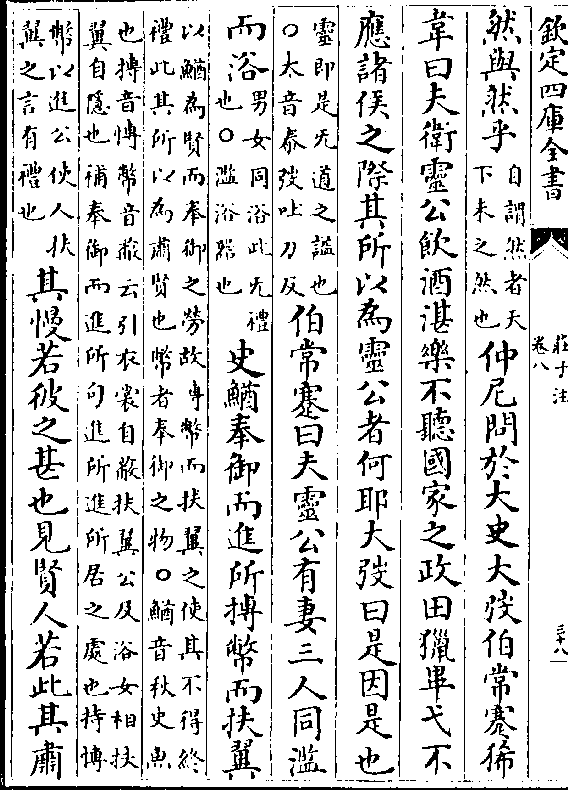 欽定四庫全書
莊子注
卷八
三十八
然與然乎自謂然者天
下未之然也仲尼問於大史大弢伯常騫狶
韋曰夫衛靈公飲酒湛樂不聽國家之政田獵畢弋不
應諸侯之際其所以為靈公者何耶大弢曰是因是也
靈即是无道之諡也
○太音泰弢吐刀反伯常騫曰夫靈公有妻三人同濫
而浴男女同浴此无禮
也○濫浴器也史鰌奉御而進所搏幣而扶翼
以鰌為賢而奉御之勞故搏幣而扶翼之使其不得終
禮此其所以為肅賢也幣者奉御之物○鰌音秋史魚
也搏音博幣音蔽云引衣裳自蔽扶翼公及浴女相扶
翼自隱也補奉御而進所句進所進所居之處也持博
幣以進公使人扶
翼之言有禮也其慢若彼之甚也見賢人若此其肅